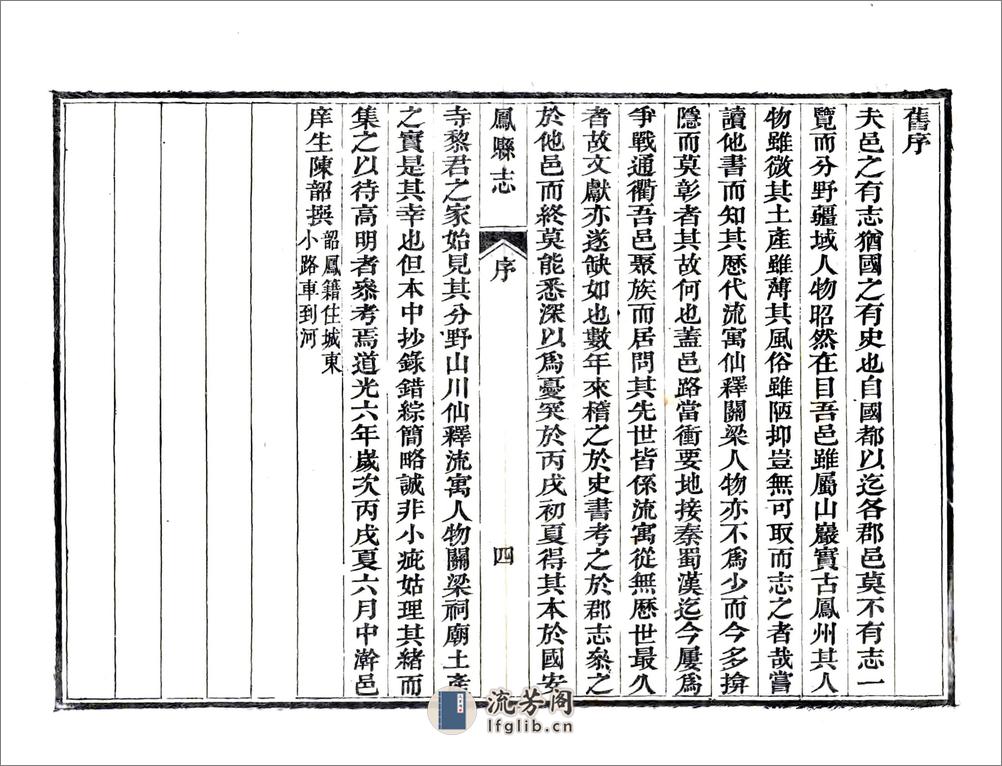 舊序
夫邑之有志猶國之有史也自國都以迄各郡邑莫不有志一
覽而分野疆域人物昭然在目吾邑雖屬山巖實古鳳州其人
物雖微其土產雖薄其風俗雖陋抑豈無可取而志之者哉嘗
讀他書而知其歷代流寓仙釋關梁人物亦不為少而今多揜
隱而莫彰者其故何也蓋邑路當衝要地接秦蜀漢迄今屢為
爭戰通衢吾邑聚族而居問其先世皆係流寓從無歷世最久
者故文獻亦遂缺如也數年來稽之於史書考之於郡志叅之
於他邑而終莫能悉深以為憂笑於丙戌初夏得其本於國安
鳳縣志
序
四
寺黎君之家始見其分野山川仙釋流寓人物關梁祠廟土產
之實是其幸也但本中抄錄錯綜簡略誠非小疵姑理其緒而
集之以待高明者叅考焉道光六年歲次丙戌夏六月中澣邑
庠生陳韶撰
韶鳳籍住城東
小路車到河
流芳阁
lfglib.cn